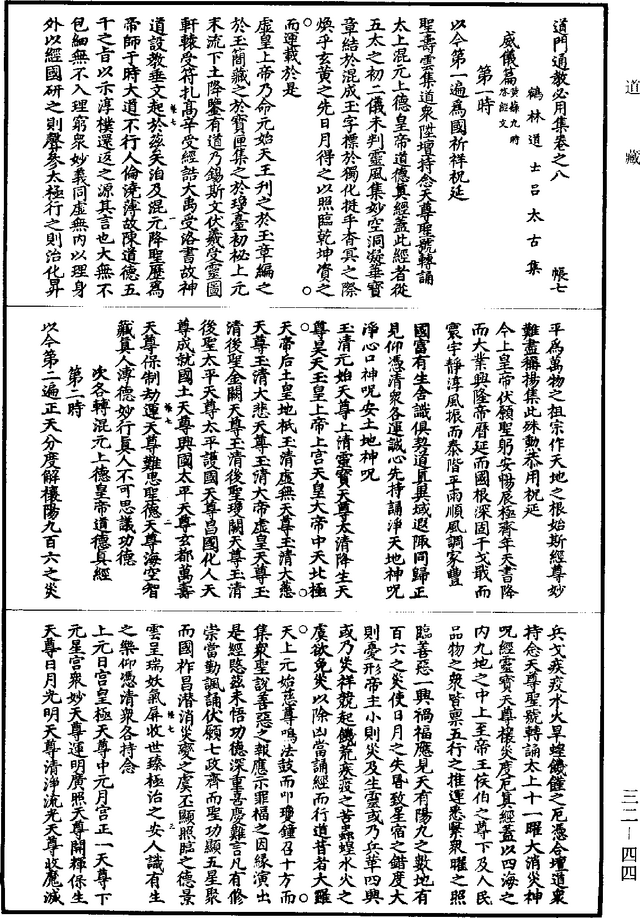 道藏
三二－四四
道門通教必用集卷之八　帳七
鶴林道士呂太古集
威儀篇黃籙九時啓經文
第一時
以今第一遍爲國祈祥祝延
聖壽雲集道衆陞壇持念天尊聖號轉誦
太上混元上德皇帝道德真經蓋此經者從
五太之初二儀未判靈風集妙空洞凝華寶
章結於混成玉字標於獨化挺乎杳冥之際
煥乎玄黃之先日月得之以照臨乾坤資之
而運載於是
虛皇上帝乃命元始天王刊之於玉章編之
於玉簡藏之於寶匣集之於瓊臺初祕上元
末流下土降鑒有道乃錫斯文伏羲受靈圖
軒轅受符扎高辛受經誥大禹受洛書故神
道設教垂文起於茲矣洎及混元降聖歷爲
帝師于時大道不行人倫澆薄故陳道德五
千之旨以示淳樸還返之源其言也大無不
包細無不入理窮衆妙義同虛無內以理身
外以經國研之則聲參太極行之則治化昇
平爲萬物之祖宗作天地之根始斯經尊妙
難盡稱揚集此殊勳恭用祝延
今上皇帝伏願聖躬安暢辰極齊年天書降
而大業興隆帝曆延而國根深固干戈戢而
寰宇靜淳風振而泰階平雨順風調家豐
國富有生含識俱勢道真異域遐陬同歸正
見仰憑清衆各運誠心先持誦淨天地神呪
淨心口神呪安土地神呪
玉清元始天尊上清靈寶天尊太清降生天
尊昊天玉皇上帝上宮天皇大帝中天北極
天帝后土皇地祇玉清虛無天尊玉清大慈
天尊玉清大悲天尊玉清大帝虛皇天尊玉
清後聖金闕天尊玉清後聖瓊闕天尊玉清
後聖太平天尊太平護國天尊昌國化人天
尊成就國土天尊興國太平天尊玄都萬壽
天尊保制劫運天尊難思聖德天尊海空智
藏真人溥德妙行真人不可思議功德
次各轉混元上德皇帝道德真經
第二時
以今第二遍正天分度解禳陽九百六之災
兵戈疾疫水火旱蝗饑饉之厄憑合壇道衆
持念天尊聖號轉誦太上十一曜大消災神
呪經靈寶天尊禳災度厄真經蓋以四海之
內九地之中上至帝王侯伯之尊下及人民
品物之衆皆禀五行之推運悉繫衆曜之照
臨善惡一興禍福應見天有陽九之數地有
百六之災使日月之失昏致星宿之錯度大
則憂形帝主小則災及生靈或乃兵華四興
或乃災祥競起饑荒疾疫之苦蟲蝗水火之
虞欲免災以除凶當誦經而行道昔者大羅
天上元始慈尊鳴法鼓而叩瓊鐘召十方而
集衆聖説善惡之報應示罪福之因緣演出
是經貽茲未悟功德深重喜慶難言凡有修
崇當勤諷誦伏願七政齊而聖功顯五星聚
而國祚昌潜消災變之虞丕顯照臨之德景
雲呈瑞妖氣屏收世臻極治之安人識有生
之樂仰憑清衆各持念
上元日宮皇極天尊中元月宮正一天尊下
元星宮衆妙天尊運明廣照天尊開釋保生
天尊日月光明天尊清淨流光天尊收魔滅